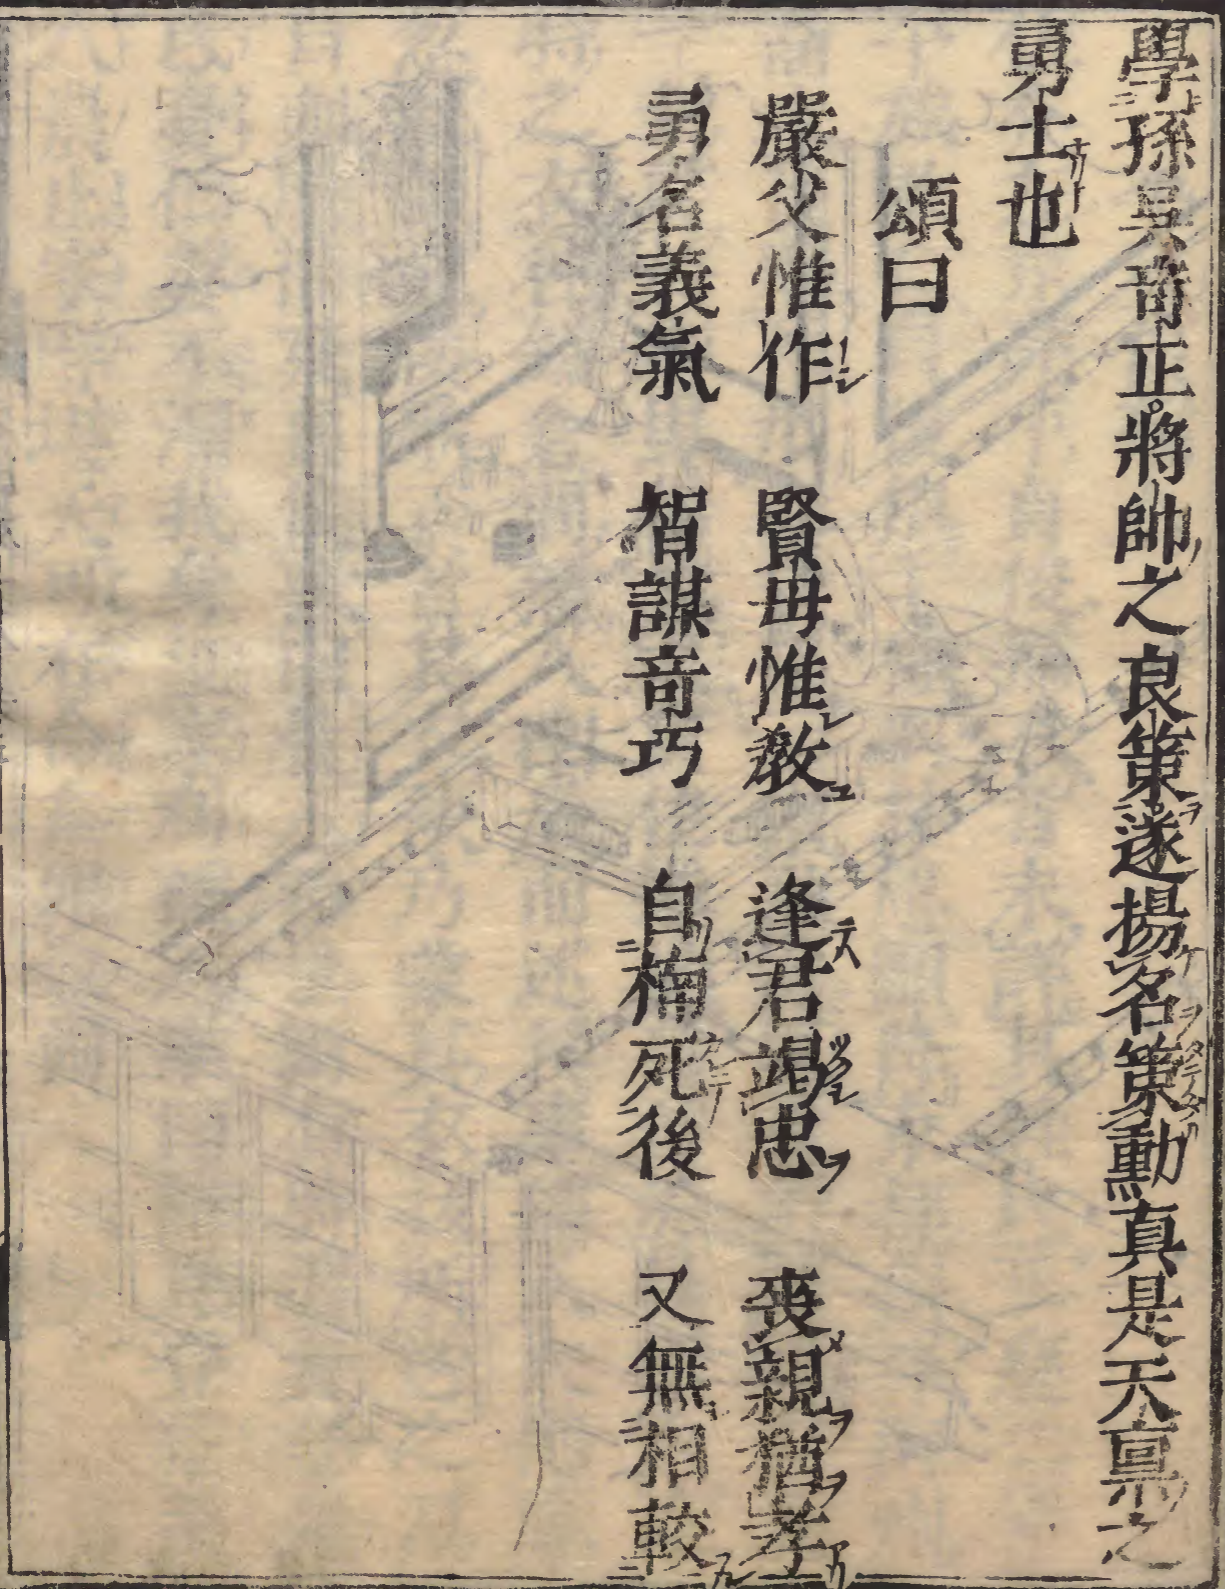 學孫吳竒正將帥之良策遂揚名策勳真是天禀之
勇士也
頌曰
嚴父惟作　賢母惟教　逢君竭忠　喪親猶孝
勇名義氣　智謀竒巧　自楠死後　又無相較